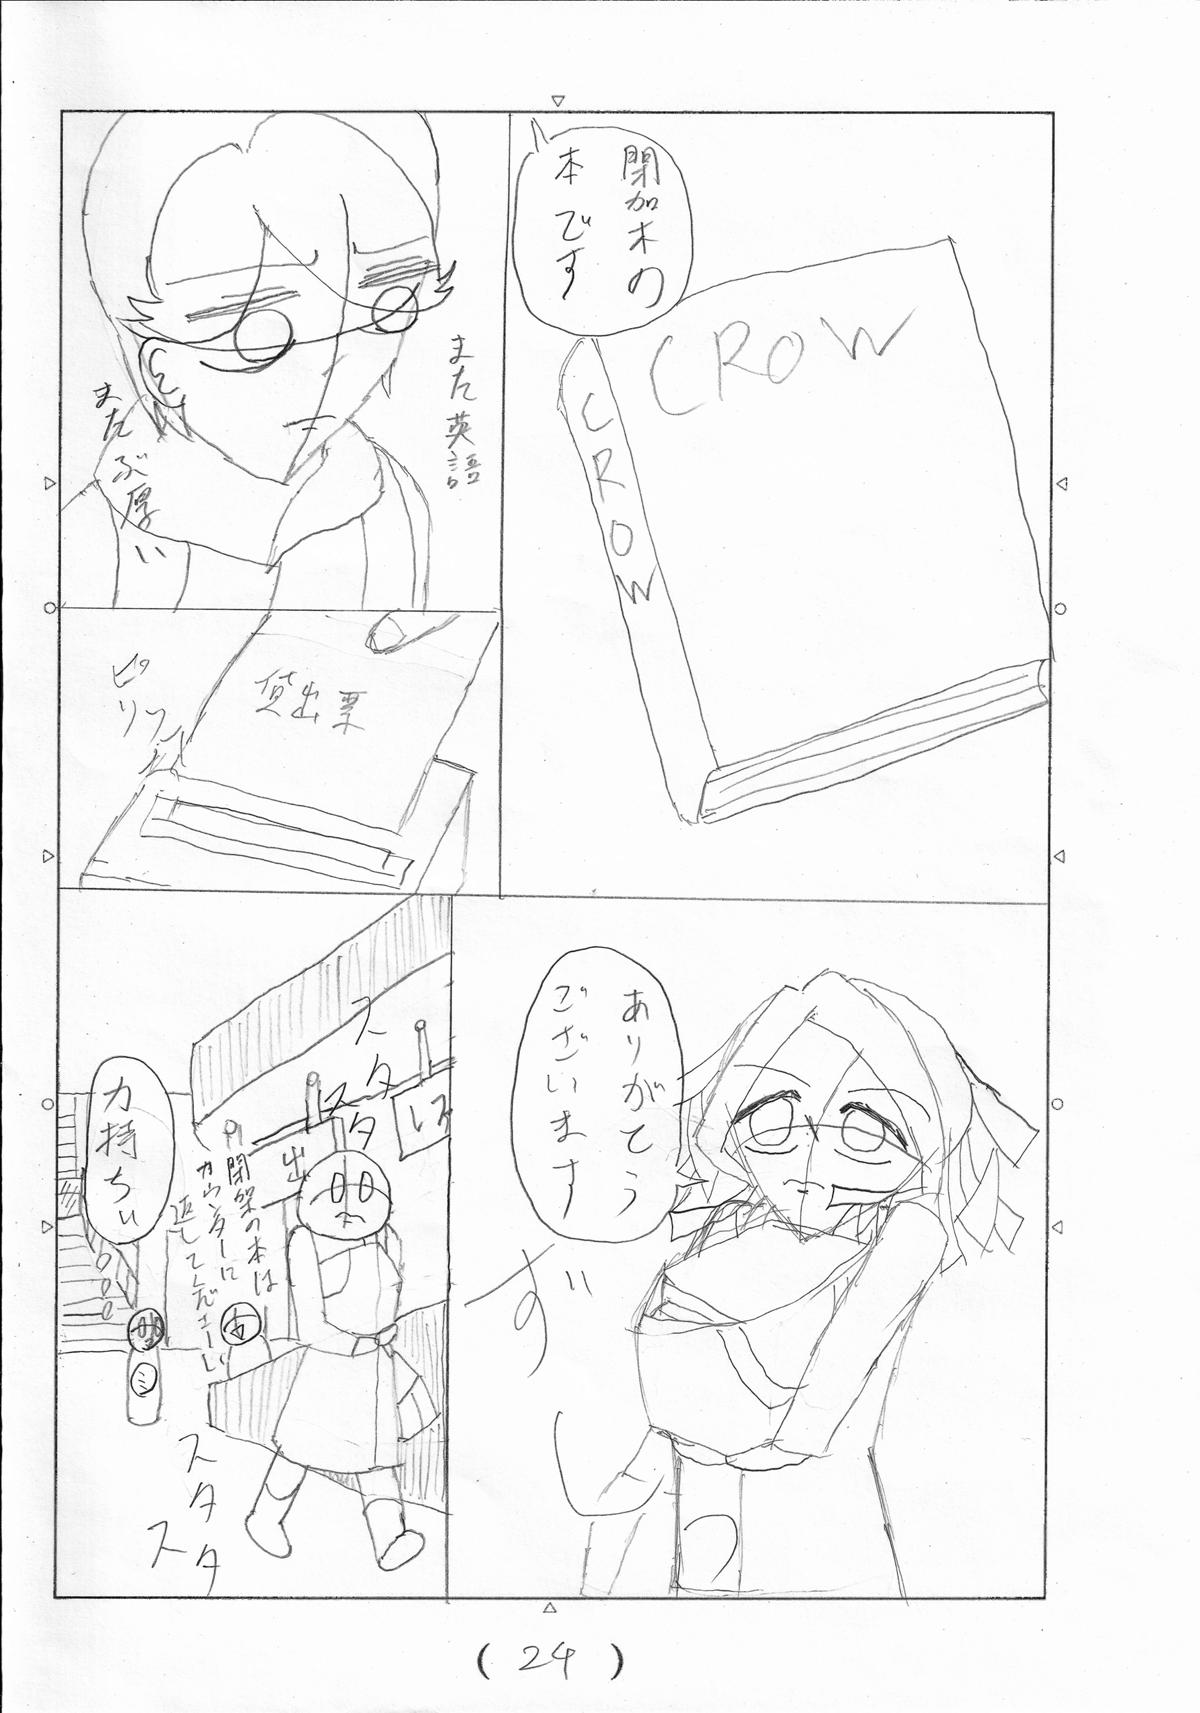 閉加木の
本です
CROW
CROW
また英語
またぶ厚い
ピリッ
貸出票
ありがとう
ございます
ずい
スタ
スタ
出
閉架の本は
カウンターに
返してくださーい
力持ちぃ
スタタ
スタ
(24)